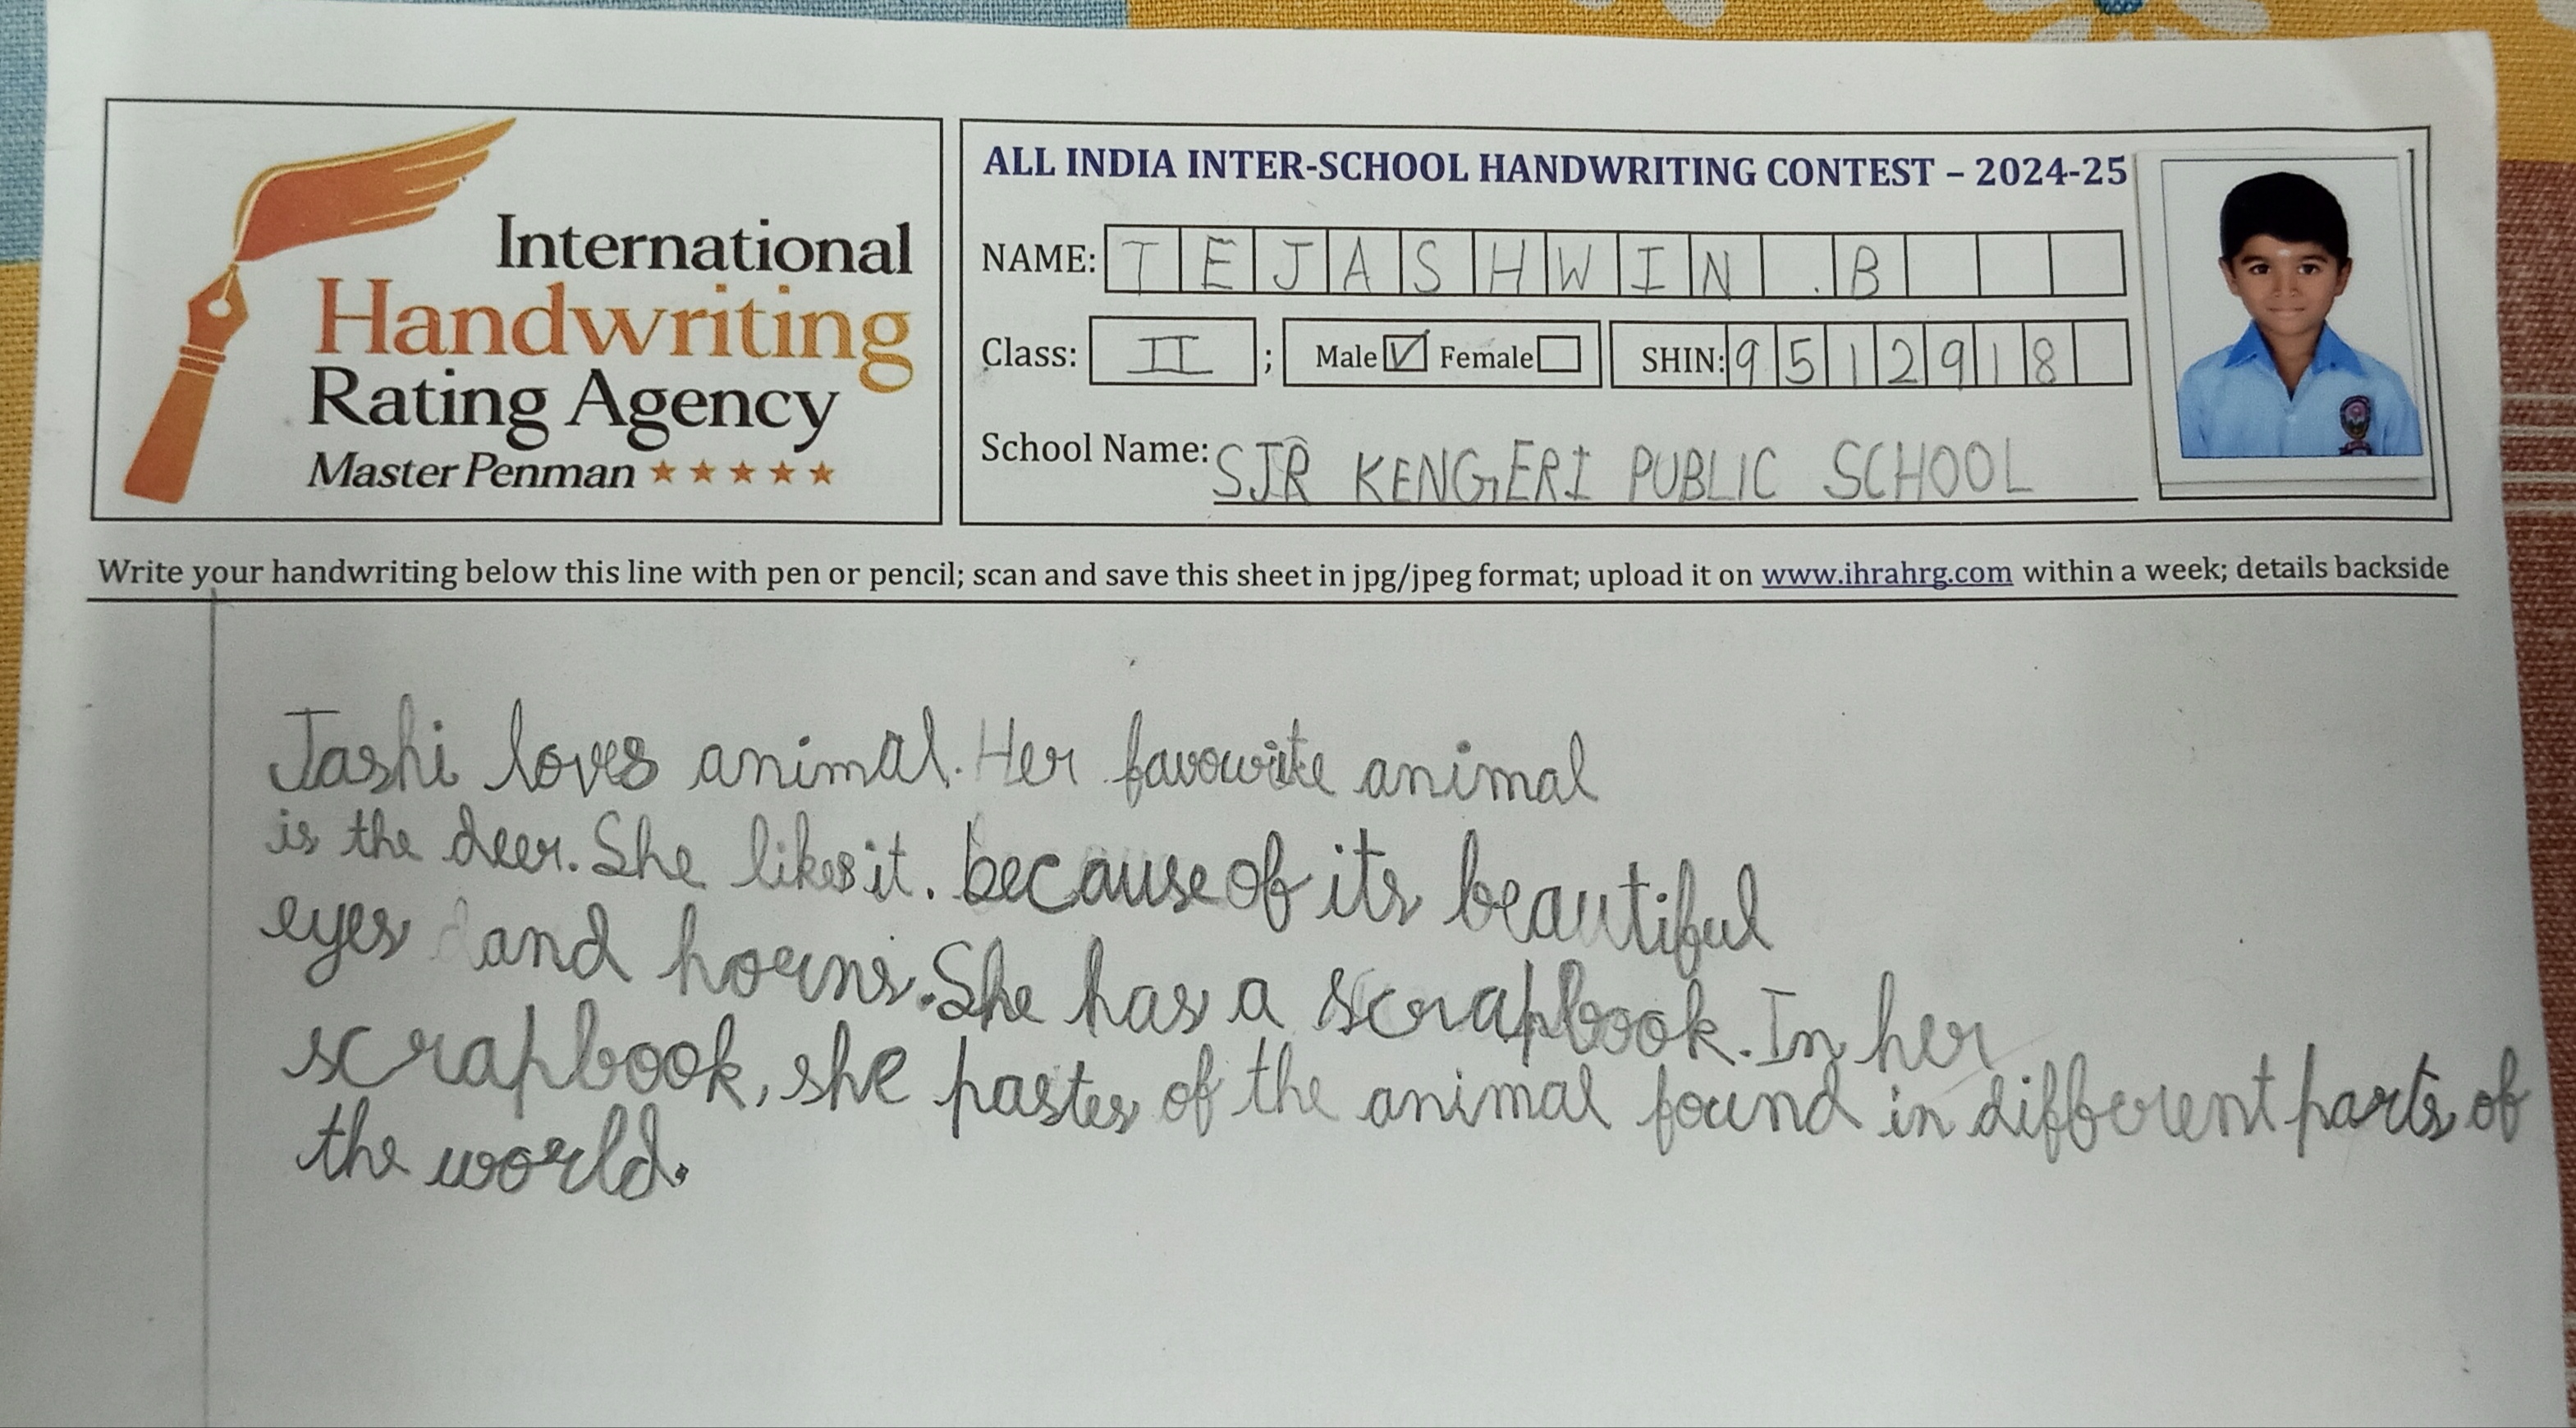 International
Handwriting
Rating Agency
Master Penman
ALL INDIA INTER-SCHOOL HANDWRITING CONTEST – 2024-25
NAME: TEJASHWIN .B
Class: II ; Male ☑ Female ☐ SHIN: 9512918
School Name: SJR KENGERI PUBLIC SCHOOL
Write your handwriting below this line with pen or pencil; scan and save this sheet in jpg/jpeg format; upload it on www.ihrahrg.com within a week; details backside
Jashi loves animal. Her favourite animal
is the deer. She likes it. because of its beautiful
eyes and horns. She has a scrapbook. In her
scrapbook, she pastes of the animal found in different parts of
the world.